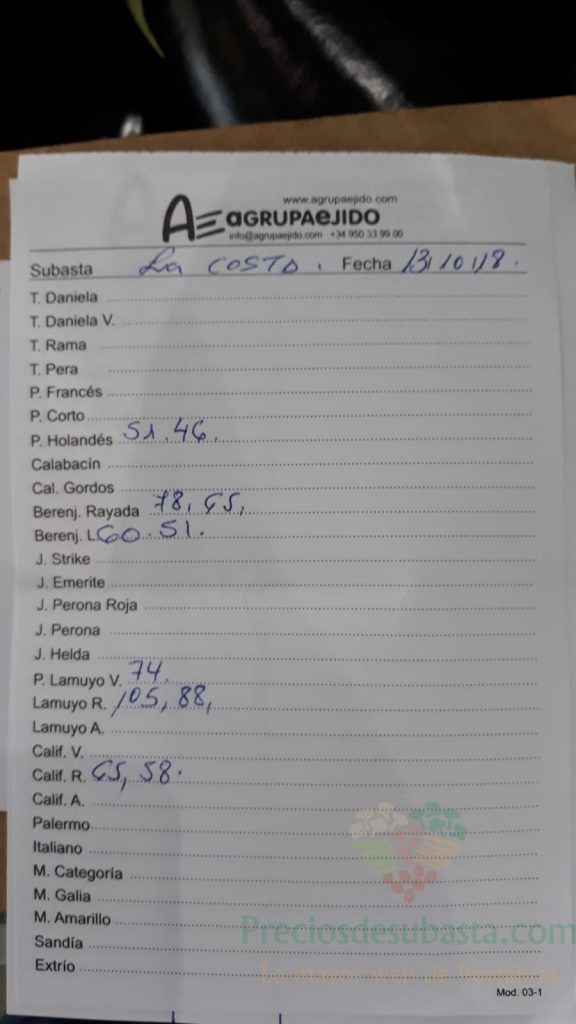 www.agrupaejido.com
AGRUPAEJIDO
info@agrupaejido.com +34 950 33 99 00
Subasta La COSTA. Fecha 13/10/18.
T. Daniela
T. Daniela V.
T. Rama
T. Pera
P. Francés
P. Corto
P. Holandés 51. 46.
Calabacín
Cal. Gordos
Berenj. Rayada 78, 65,
Berenj. L 60. 51.
J. Strike
J. Emerite
J. Perona Roja
J. Perona
J. Helda
P. Lamuyo V. 74.
Lamuyo R. 105, 88,
Lamuyo A.
Calif. V.
Calif. R. 65, 58.
Calif. A.
Palermo
Italiano
M. Categoría
M. Galia
M. Amarillo
Sandía
Extrío
Preciosdesubasta.com
La mayor web de hortalizas
Mod. 03-1